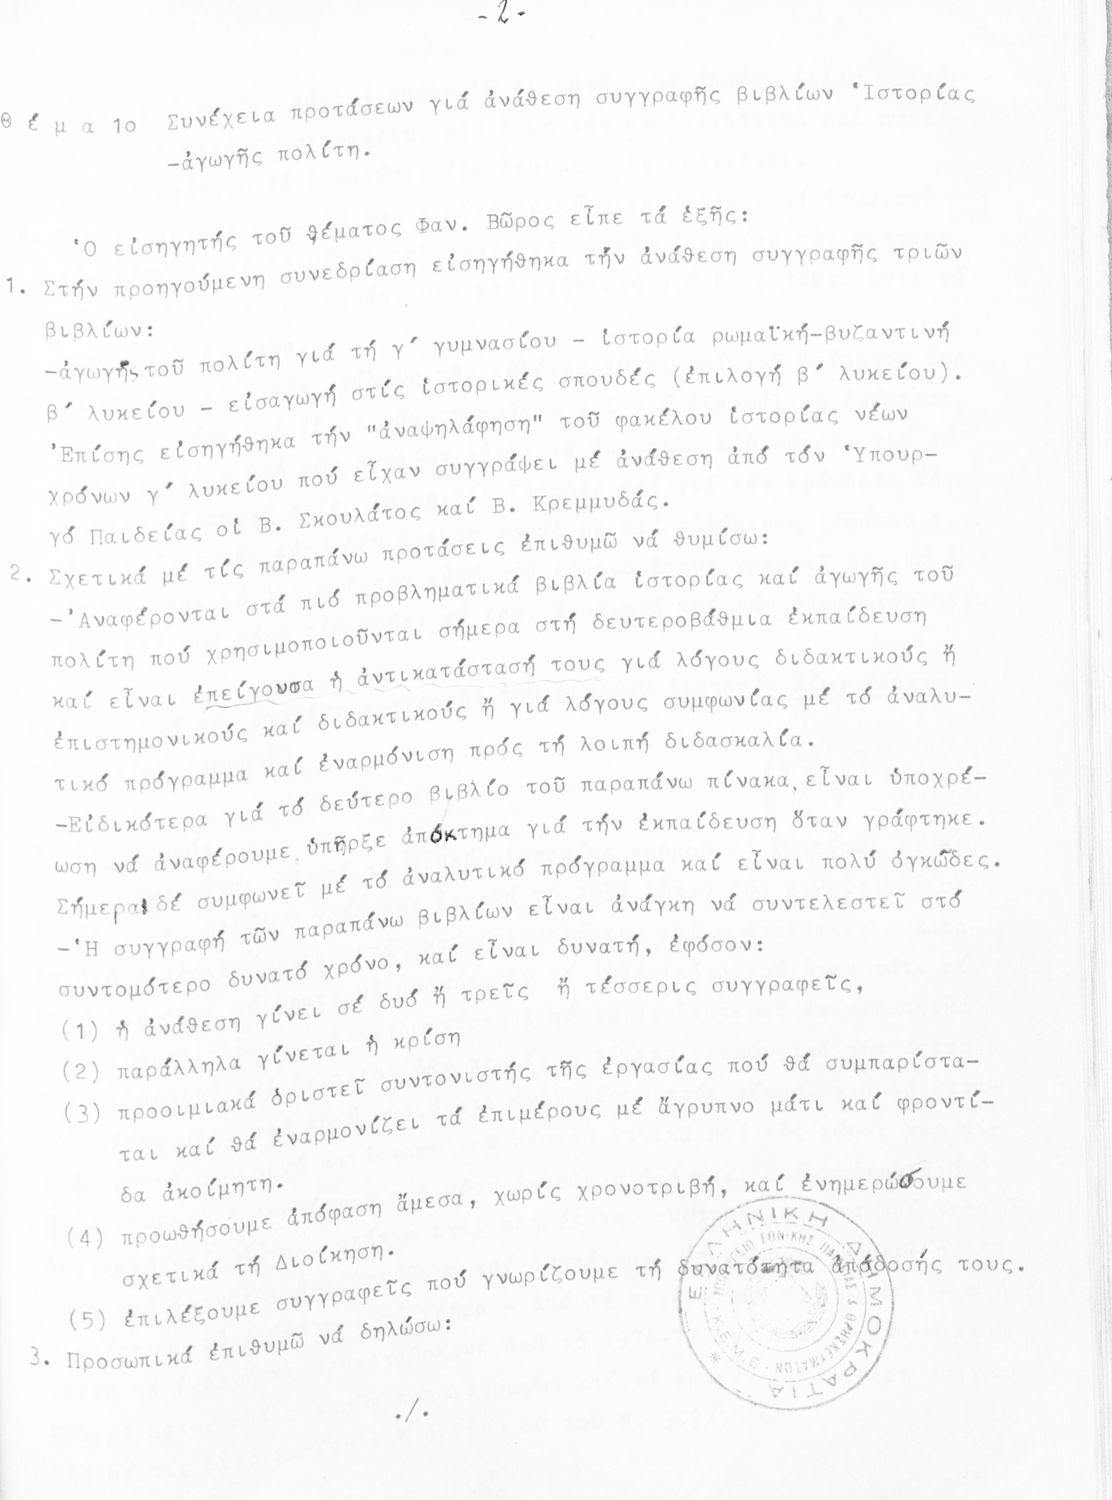 -2-
Θ έ μ α 1ο Συνέχεια προτάσεων γιά ἀνάθεση συγγραφῆς βιβλίων Ἱστορίας
-ἀγωγῆς πολίτη.
Ὁ εἰσηγητής τοῦ θέματος Φαν. Βῶρος εἶπε τά ἑξῆς:
1. Στήν προηγούμενη συνεδρίαση εἰσηγήθηκα τήν ἀνάθεση συγγραφῆς τριῶν
βιβλίων:
-ἀγωγῆς τοῦ πολίτη γιά τή γ΄ γυμνασίου - ἱστορία ρωμαϊκή-βυζαντινή
β΄ λυκείου - εἰσαγωγή στίς ἱστορικές σπουδές (ἐπιλογή β΄ λυκείου).
Ἐπίσης εἰσηγήθηκα τήν "ἀναψηλάφηση" τοῦ φακέλου ἱστορίας νέων
χρόνων γ΄ λυκείου πού εἶχαν συγγράψει μέ ἀνάθεση ἀπό τόν Ὑπουρ-
γό Παιδείας οἱ Β. Σκουλάτος καί Β. Κρεμμυδάς.
2. Σχετικά μέ τίς παραπάνω προτάσεις ἐπιθυμῶ νά θυμίσω:
-Ἀναφέρονται στά πιό προβληματικά βιβλία ἱστορίας καί ἀγωγῆς τοῦ
πολίτη πού χρησιμοποιοῦνται σήμερα στή δευτεροβάθμια ἐκπαίδευση
καί εἶναι ἐπείγουσα ἡ ἀντικατάστασή τους γιά λόγους διδακτικούς ἤ
ἐπιστημονικούς καί διδακτικούς ἤ γιά λόγους συμφωνίας μέ τό ἀναλυ-
τικό πρόγραμμα καί ἐναρμόνιση πρός τή λοιπή διδασκαλία.
-Εἰδικότερα γιά τό δεύτερο βιβλίο τοῦ παραπάνω πίνακα, εἶναι ὑποχρέ-
ωση νά ἀναφέρουμε, ὑπῆρξε ἀπόκτημα γιά τήν ἐκπαίδευση ὅταν γράφτηκε.
Σήμερα δέ συμφωνεῖ μέ τό ἀναλυτικό πρόγραμμα καί εἶναι πολύ ὀγκῶδες.
-Ἡ συγγραφή τῶν παραπάνω βιβλίων εἶναι ἀνάγκη νά συντελεστεῖ στό
συντομότερο δυνατό χρόνο, καί εἶναι δυνατή, ἐφόσον:
(1) ἡ ἀνάθεση γίνει σέ δυό ἤ τρεῖς ἤ τέσσερις συγγραφεῖς,
(2) παράλληλα γίνεται ἡ κρίση
(3) προοιμιακά ὁριστεῖ συντονιστής τῆς ἐργασίας πού θά συμπαρίστα-
ται καί θά ἐναρμονίζει τά ἐπιμέρους μέ ἄγρυπνο μάτι καί φροντί-
δα ἀκοίμητη.
(4) προωθήσουμε ἀπόφαση ἄμεσα, χωρίς χρονοτριβή, καί ἐνημερώσουμε
σχετικά τή Διοίκηση.
(5) ἐπιλέξουμε συγγραφεῖς πού γνωρίζουμε τή δυνατότητα ἀπόδοσής τους.
3. Προσωπικά ἐπιθυμῶ νά δηλώσω:
./.
ΕΛΛΗΝΙΚΗ ΔΗΜΟΚΡΑΤΙΑ
ΥΠΟΥΡΓΕΙΟ ΕΘΝΙΚΗΣ ΠΑΙΔΕΙΑΣ & ΘΡΗΣΚΕΥΜΑΤΩΝ
* Κ.Ε.Μ.Ε.